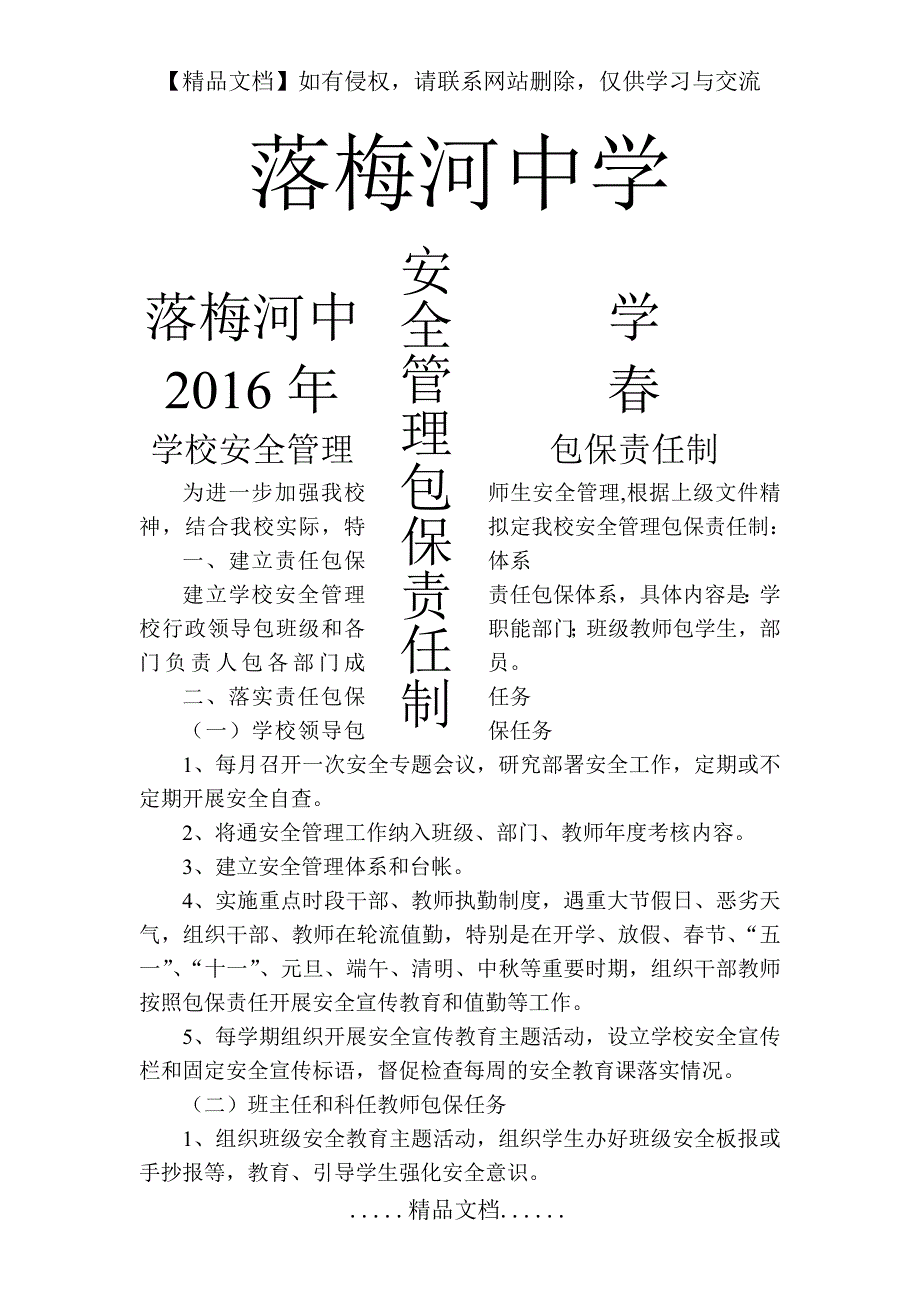 【精品文档】如有侵权，请联系网站删除，仅供学习与交流
落梅河中学
安全管理包保责任制
落梅河中学
2016年春
学校安全管理包保责任制
为进一步加强我校师生安全管理,根据上级文件精
神，结合我校实际，特拟定我校安全管理包保责任制：
一、建立责任包保体系
建立学校安全管理责任包保体系，具体内容是：学
校行政领导包班级和各职能部门；班级教师包学生，部
门负责人包各部门成员。
二、落实责任包保任务
（一）学校领导包保任务
1、每月召开一次安全专题会议，研究部署安全工作，定期或不
定期开展安全自查。
2、将通安全管理工作纳入班级、部门、教师年度考核内容。
3、建立安全管理体系和台帐。
4、实施重点时段干部、教师执勤制度，遇重大节假日、恶劣天
气，组织干部、教师在轮流值勤，特别是在开学、放假、春节、“五
一”、“十一”、元旦、端午、清明、中秋等重要时期，组织干部教师
按照包保责任开展安全宣传教育和值勤等工作。
5、每学期组织开展安全宣传教育主题活动，设立学校安全宣传
栏和固定安全宣传标语，督促检查每周的安全教育课落实情况。
（二）班主任和科任教师包保任务
1、组织班级安全教育主题活动，组织学生办好班级安全板报或
手抄报等，教育、引导学生强化安全意识。
.....精品文档......